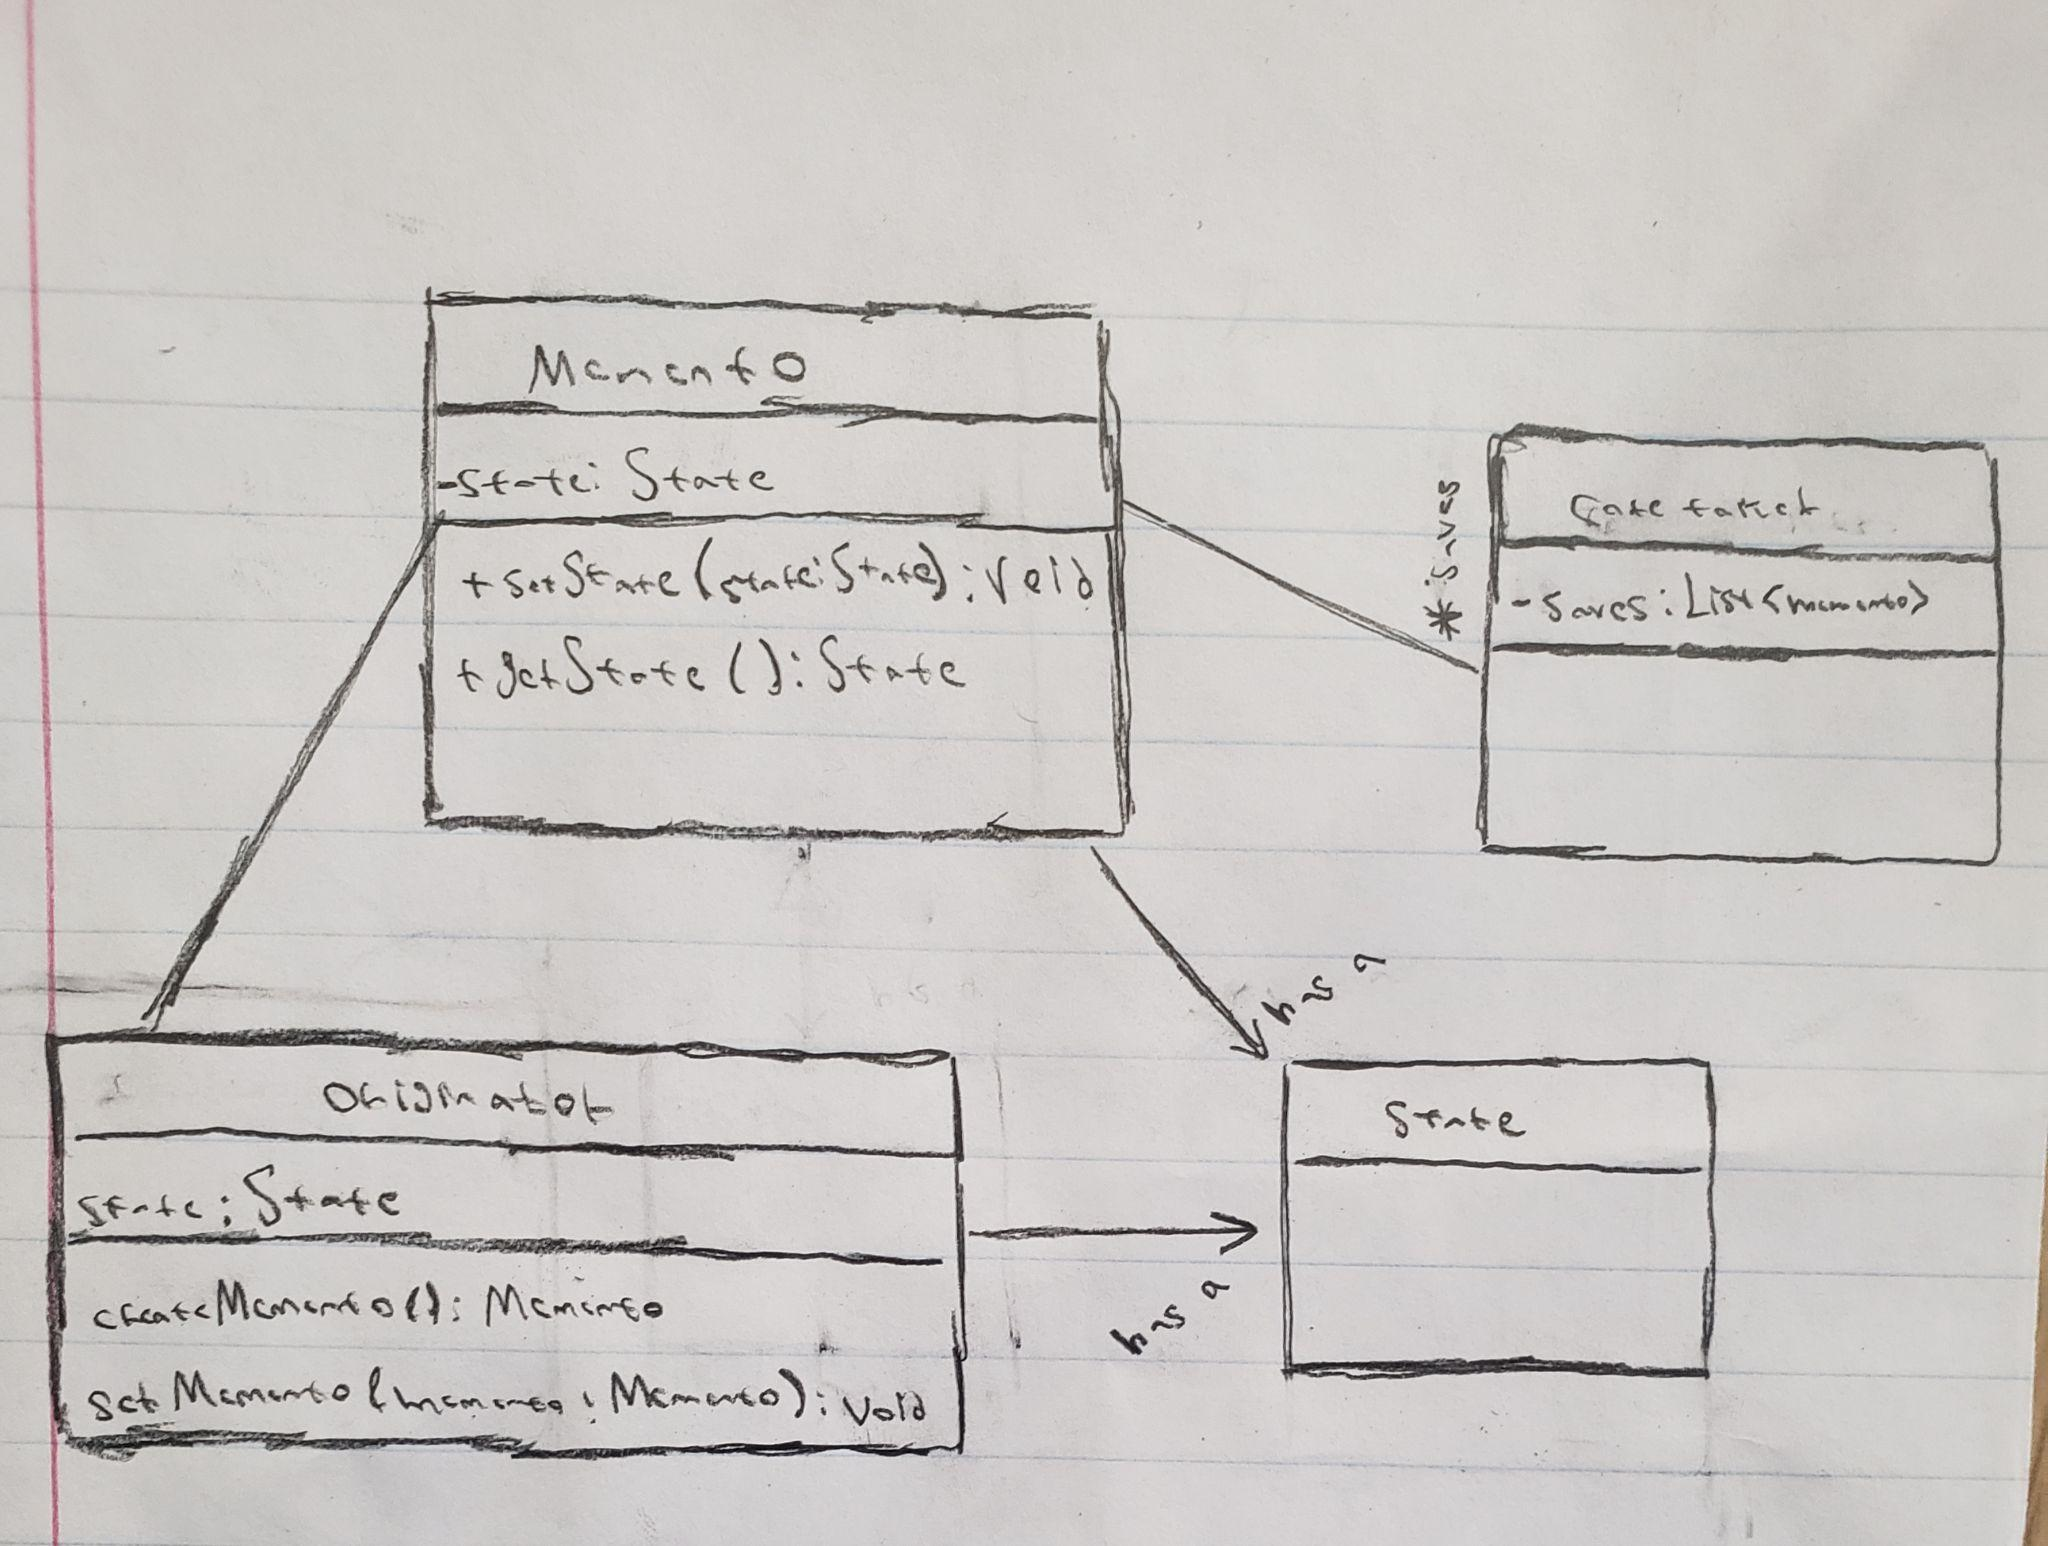 Memento
-state: State
+setState(state: State): Void
+getState(): State
* saves
Caretaker
-saves: List<memento>
has a
Originator
state: State
createMemento(): Memento
setMemento(memento: Memento): Void
has a
State